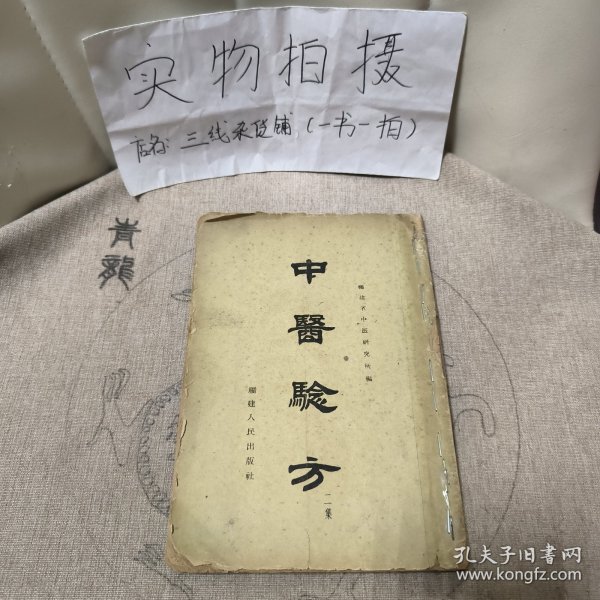 实物拍摄
店名：三线杂货铺（一书一拍）
青龍
福建省中医研究所編
中醫驗方
二集
福建人民出版社
孔夫子旧书网
www.kongfz.com